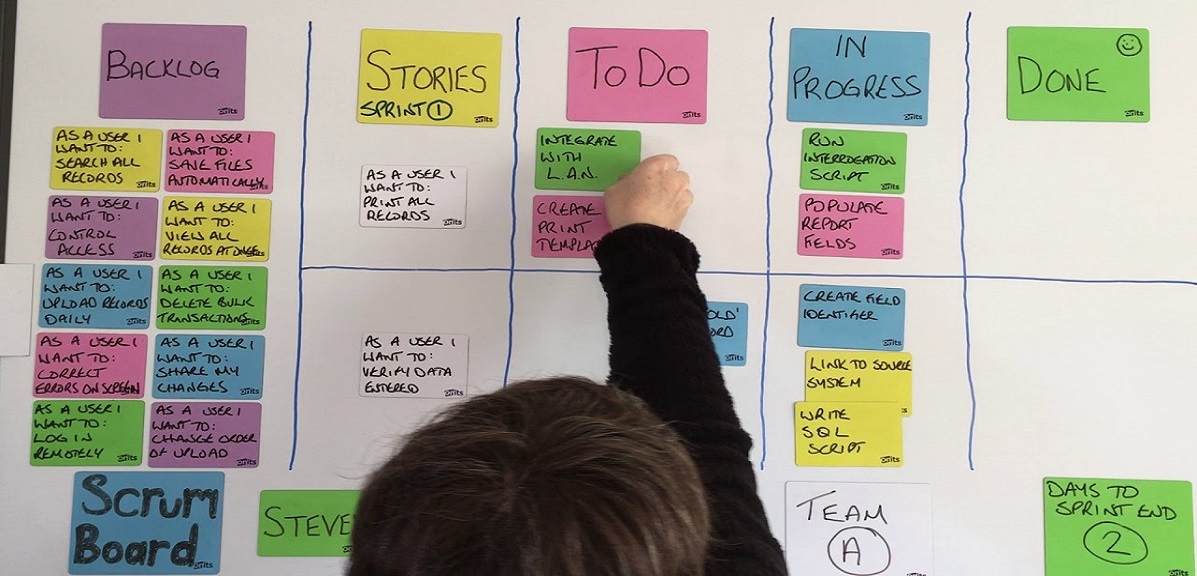 BACKLOG
STORIES
SPRINT 1
TO DO
IN
PROGRESS
DONE
AS A USER I
WANT TO:
SEARCH ALL
RECORDS
AS A USER I
WANT TO:
SAVE FILES
AUTOMATICALLY
AS A USER I
WANT TO:
CONTROL
ACCESS
AS A USER I
WANT TO:
VIEW ALL
RECORDS AT ONCE
AS A USER I
WANT TO:
UPLOAD RECORDS
DAILY
AS A USER I
WANT TO:
DELETE BULK
TRANSACTIONS
AS A USER I
WANT TO:
CORRECT
ERRORS ON SCREEN
AS A USER I
WANT TO:
SHARE MY
CHANGES
AS A USER I
WANT TO:
LOG IN
REMOTELY
AS A USER I
WANT TO:
CHANGE ORDER
OF UPLOAD
AS A USER I
WANT TO:
PRINT ALL
RECORDS
AS A USER I
WANT TO:
VERIFY DATA
ENTERED
INTEGRATE
WITH
L.A.N.
CREATE
PRINT
RUN
INTERROGATION
SCRIPT
POPULATE
REPORT
FIELDS
CREATE FIELD
IDENTIFIER
LINK TO SOURCE
SYSTEM
WRITE
SQL
SCRIPT
Scrum
Board
STEVE
TEAM
A
DAYS TO
SPRINT END
2